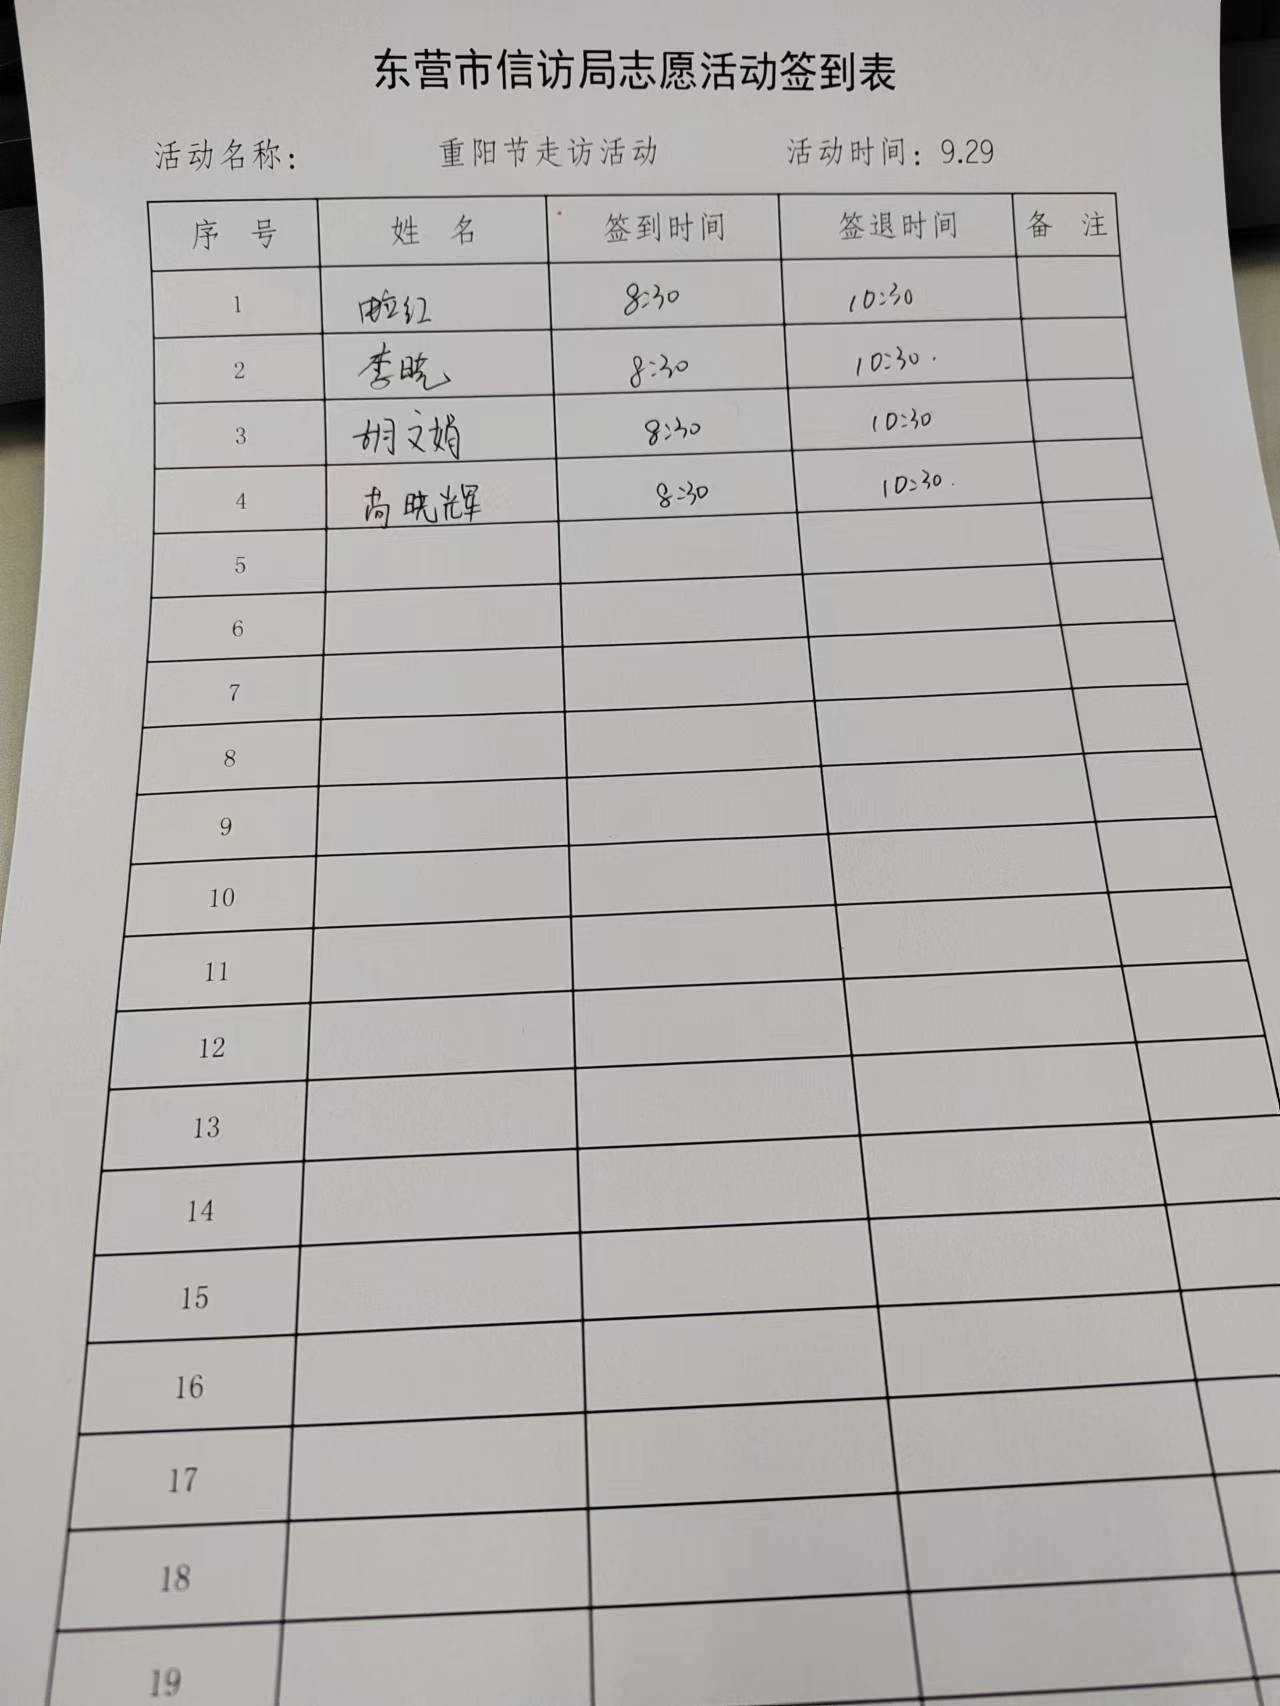 东营市信访局志愿活动签到表
活动名称： 重阳节走访活动 活动时间：9.29
序 号 姓 名 签到时间 签退时间 备 注
1 红 8:30 10:30
2 李晓 8:30 10:30.
3 胡文娟 8:30 10:30
4 尚晓辉 8:30 10:30.
5
6
7
8
9
10
11
12
13
14
15
16
17
18
19